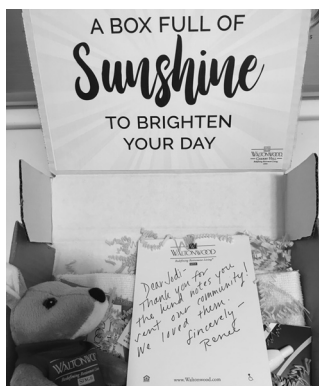 A BOX FULL OF
Sunshine
TO BRIGHTEN
YOUR DAY
WALTONWOOD
WALTONWOOD
Dear Jodi-
Thank you for
the kind notes you
sent our community!
We loved them.
Sincerely-
Renee
WALTONWOOD
www.Waltonwood.com